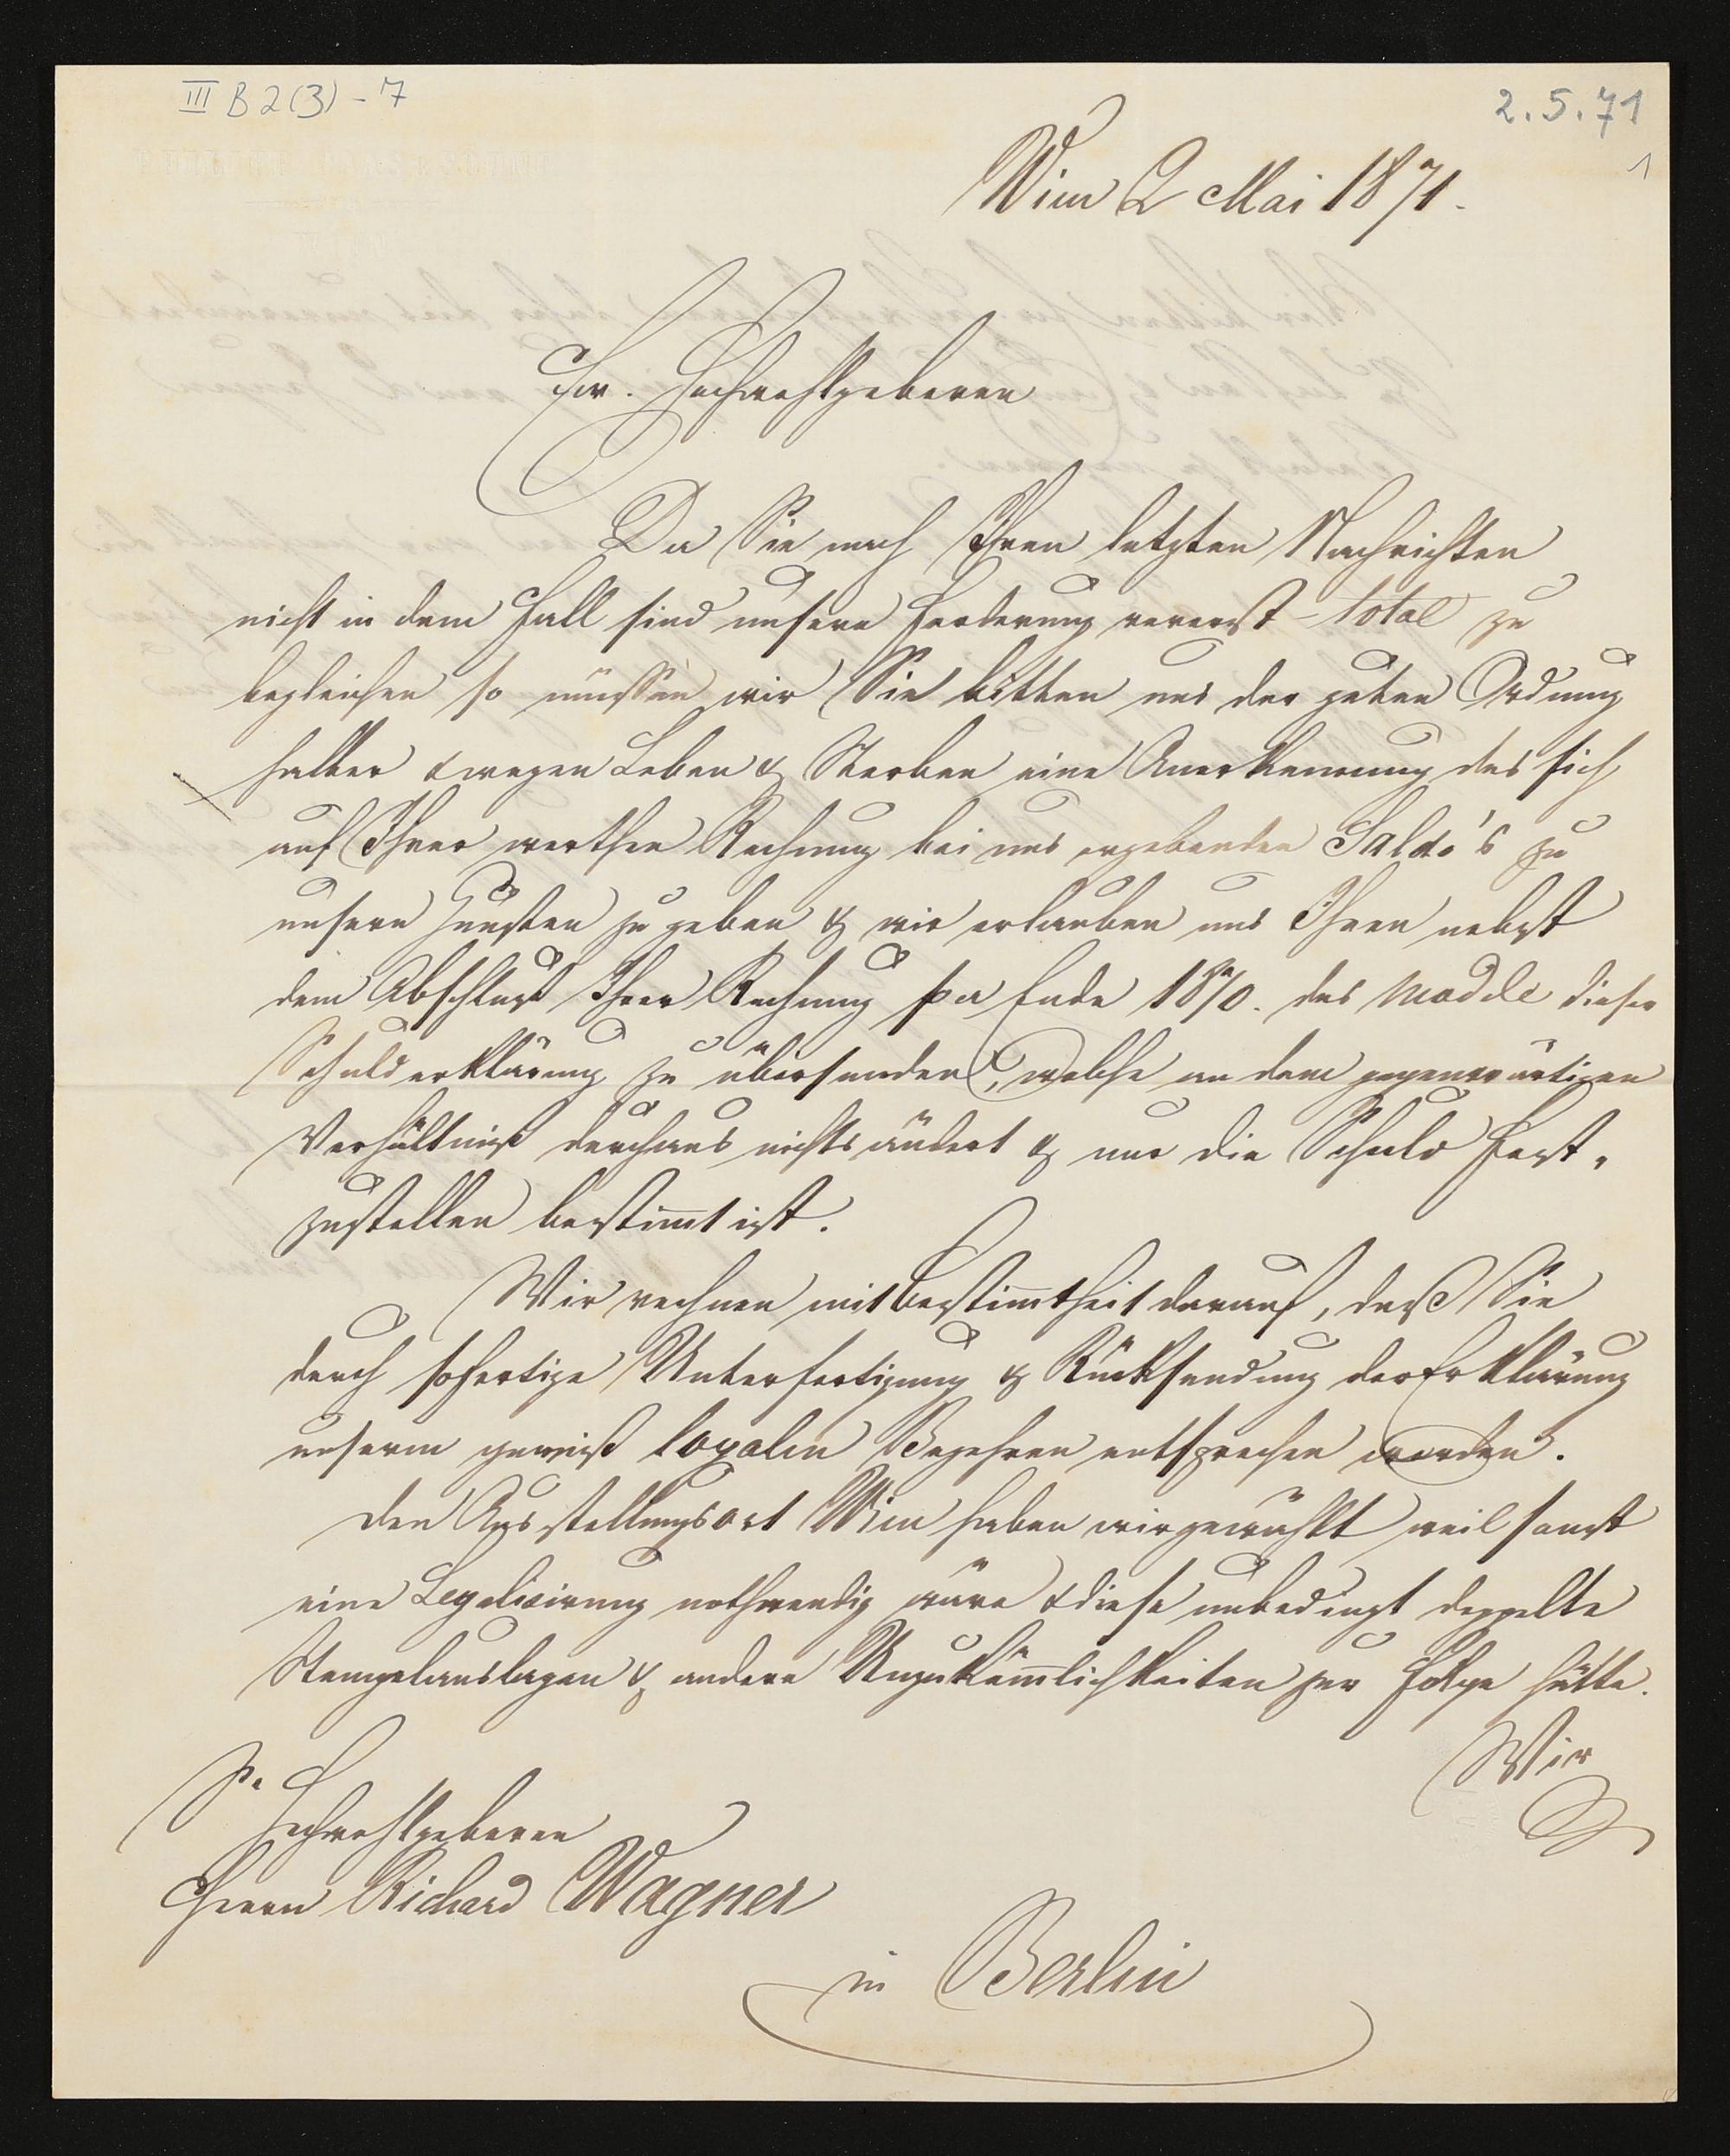 III B 2(3) - 7
2.5.71
1
Wien 2 Mai 1871.
Ew. Hochwohlgeboren
Da Sie nach Ihren letzten Nachrichten
nicht in dem Fall sind unsere Forderung vorerst total zu
begleichen so müssen wir Sie bitten uns der guten Ordnung
halber & wegen Leben & Sterben eine Anerkennung des sich
auf Ihrer werthen Rechnung bei uns ergebenden Saldo's zu
unsern Gunsten zu geben & wir erlauben uns Ihnen nebst
dem Abschluß Ihrer Rechnung per Ende 1870. das Modele dieser
Schulderklärung zu übersenden, welche an dem gegenwärtigen
Verhältniß durchaus nichts ändert & nur die Schuld fest-
zustellen bestimt ist.
Wir rechnen mit Bestimtheit darauf, daß Sie
durch sofortige Unterfertigung & Rücksendung der Erklärung
unserm gewiß loyalen Begehren entsprechen werden.
Den Ausstellungsort Wien haben wir gewählt weil sonst
eine Legalisirung nothwendig wäre & diese unbedingt doppelte
Stempelauslagen & andere Unzukömlichkeiten zur Folge hätte.
Wir
Sr
Hochwohlgeboren
Herrn Richard Wagner
in Berlin